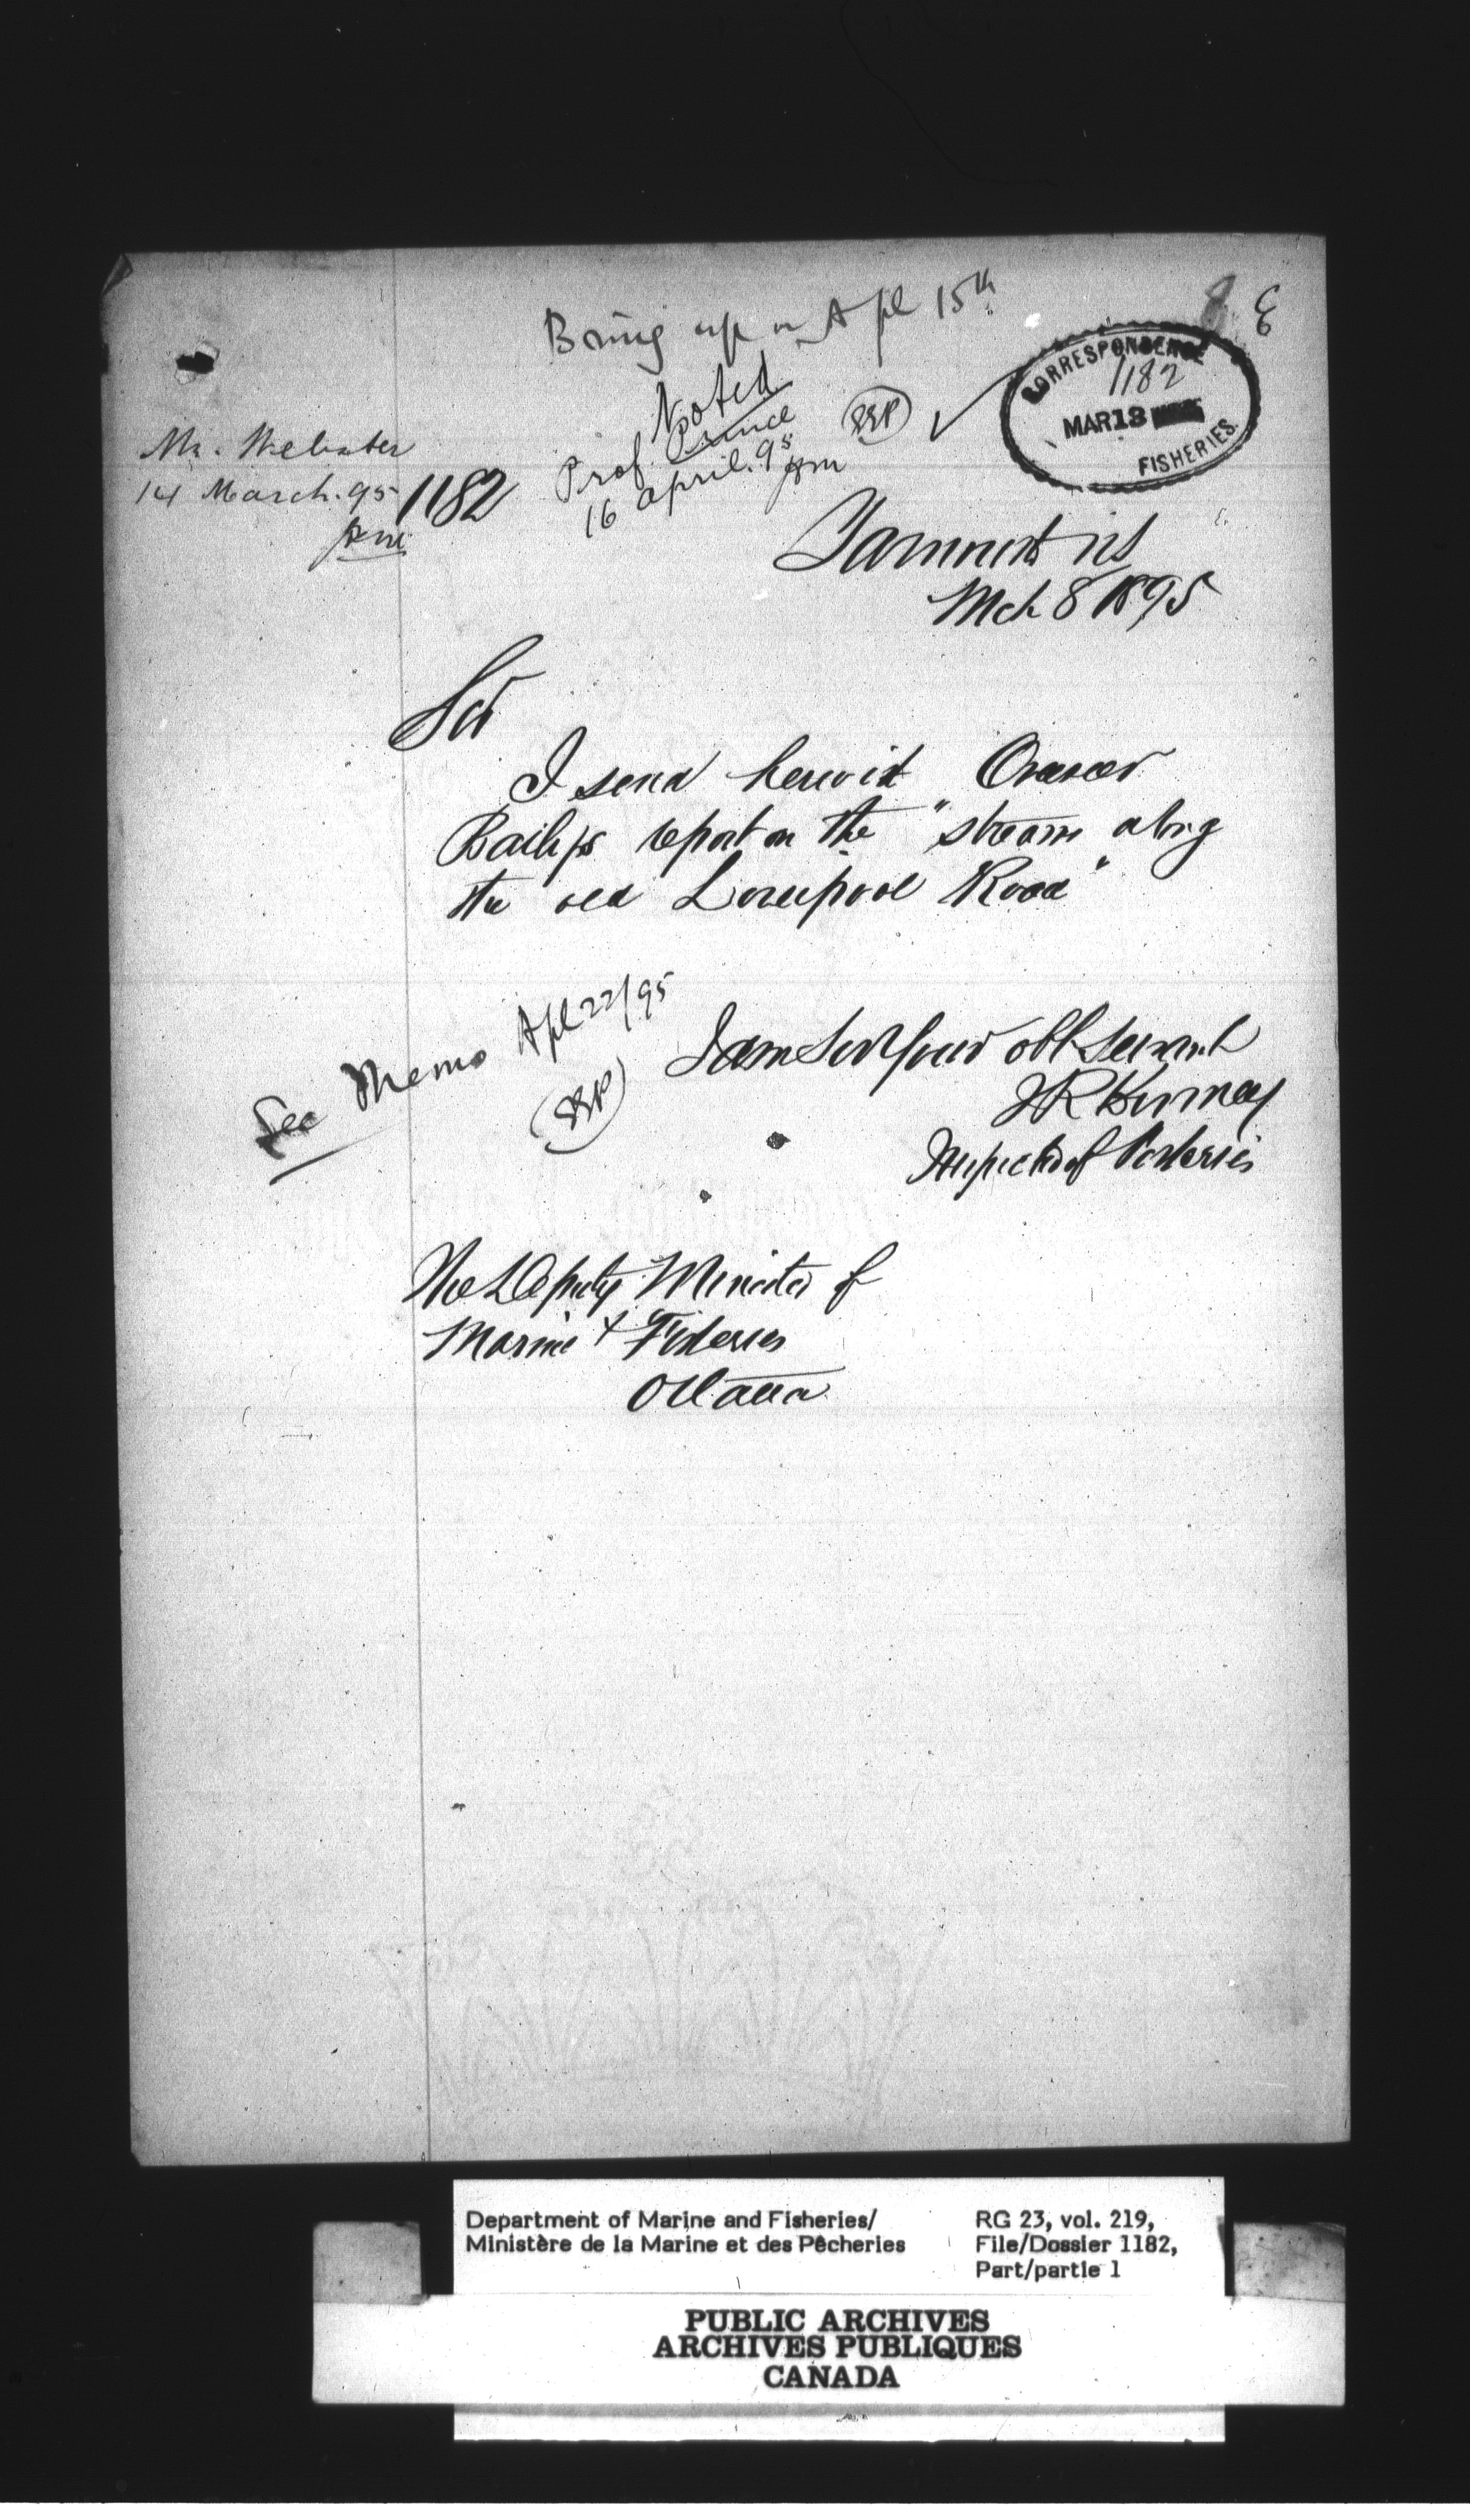 Bring up on Apl 15th
8
Noted
Prof. Prince
16 April. 95
CORRESPONDENCE
1182
MAR 13
FISHERIES.
Mr. Webster
14 March. 95
1182
Yarmouth NS
Mch 8 1895
Sir
I send herewith Overseer
Baily's report on the "streams along
the old Liverpool Road"
See Memo Apl 22/95
I am Sir Your obt Servant
JR Kinney
Inspector of Fisheries
The Deputy Minister of
Marine + Fisheries
Ottawa
Department of Marine and Fisheries/
Ministère de la Marine et des Pêcheries
RG 23, vol. 219,
File/Dossier 1182,
Part/partie 1
PUBLIC ARCHIVES
ARCHIVES PUBLIQUES
CANADA